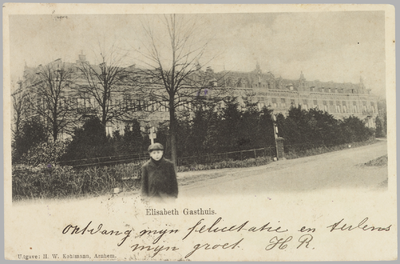 Elisabeth Gasthuis.
Ontvang mijn felicetatie en tevens
mijn groet. H R
Uitgave: H. W. Kahmann, Arnhem.